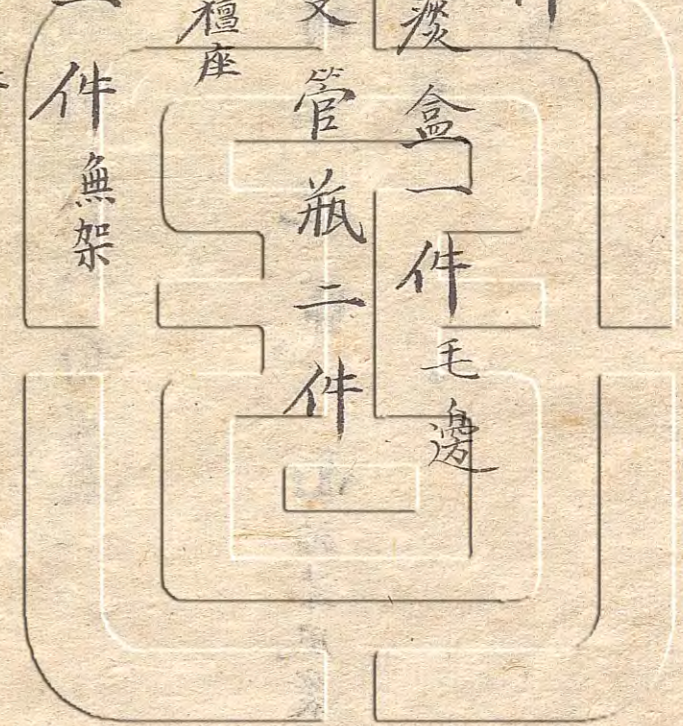 件
痰盒一件毛邊
管瓶二件
檀座
件無架